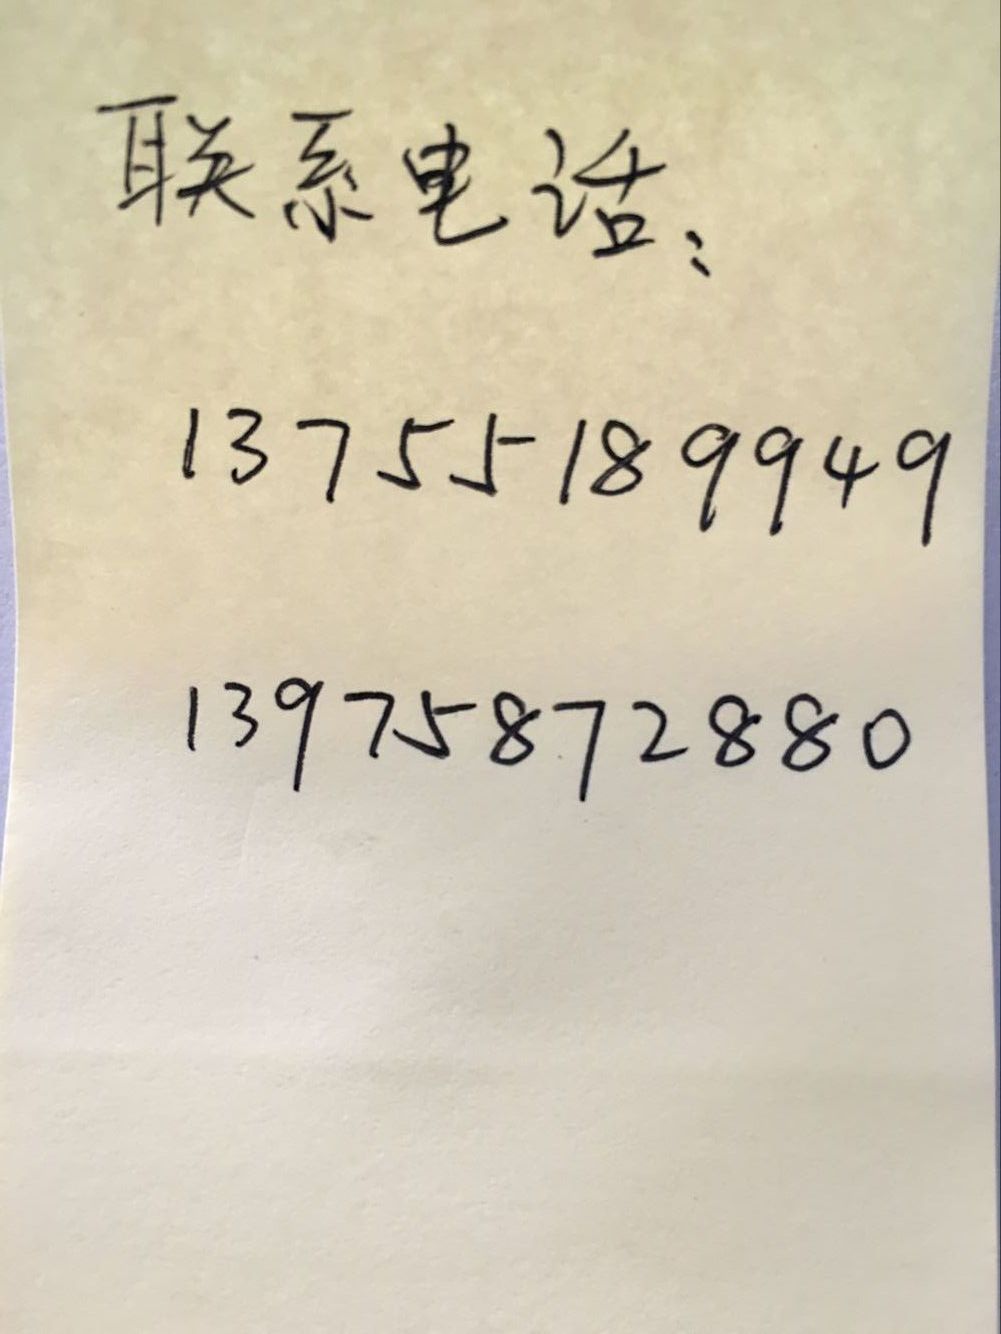 联系电话：
13755189949
13975872880